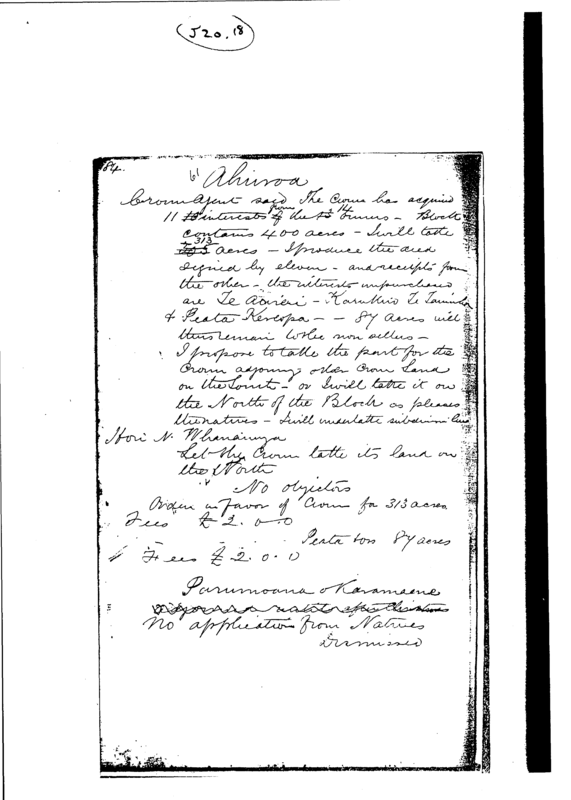 J20.18
84.
61 Ahuroa
Crown Agent said The Crown has acquired
11 interests from of the 14 owners – Block
contains 400 acres – I will take
313 acres – I produce the deed
signed by eleven – and receipts from
the other – the interests unpurchased
are Te – Te
& Peata Kereopa – – 87 acres will
thus remain to the non sellers –
I propose to take the part for the
Crown adjoining other Crown Land
on the South – or I will take it on
the North of the Block as pleases
the natives – I will undertake subdivision line
Hori N.
Let the Crown take its land on
the North
No objectors
Order in favor of Crown for 313 acres
Fees £2.0.0
Peata 87 acres
Fees £2.0.0
Parumoana o Karamaene
No application from Natives
Dismissed